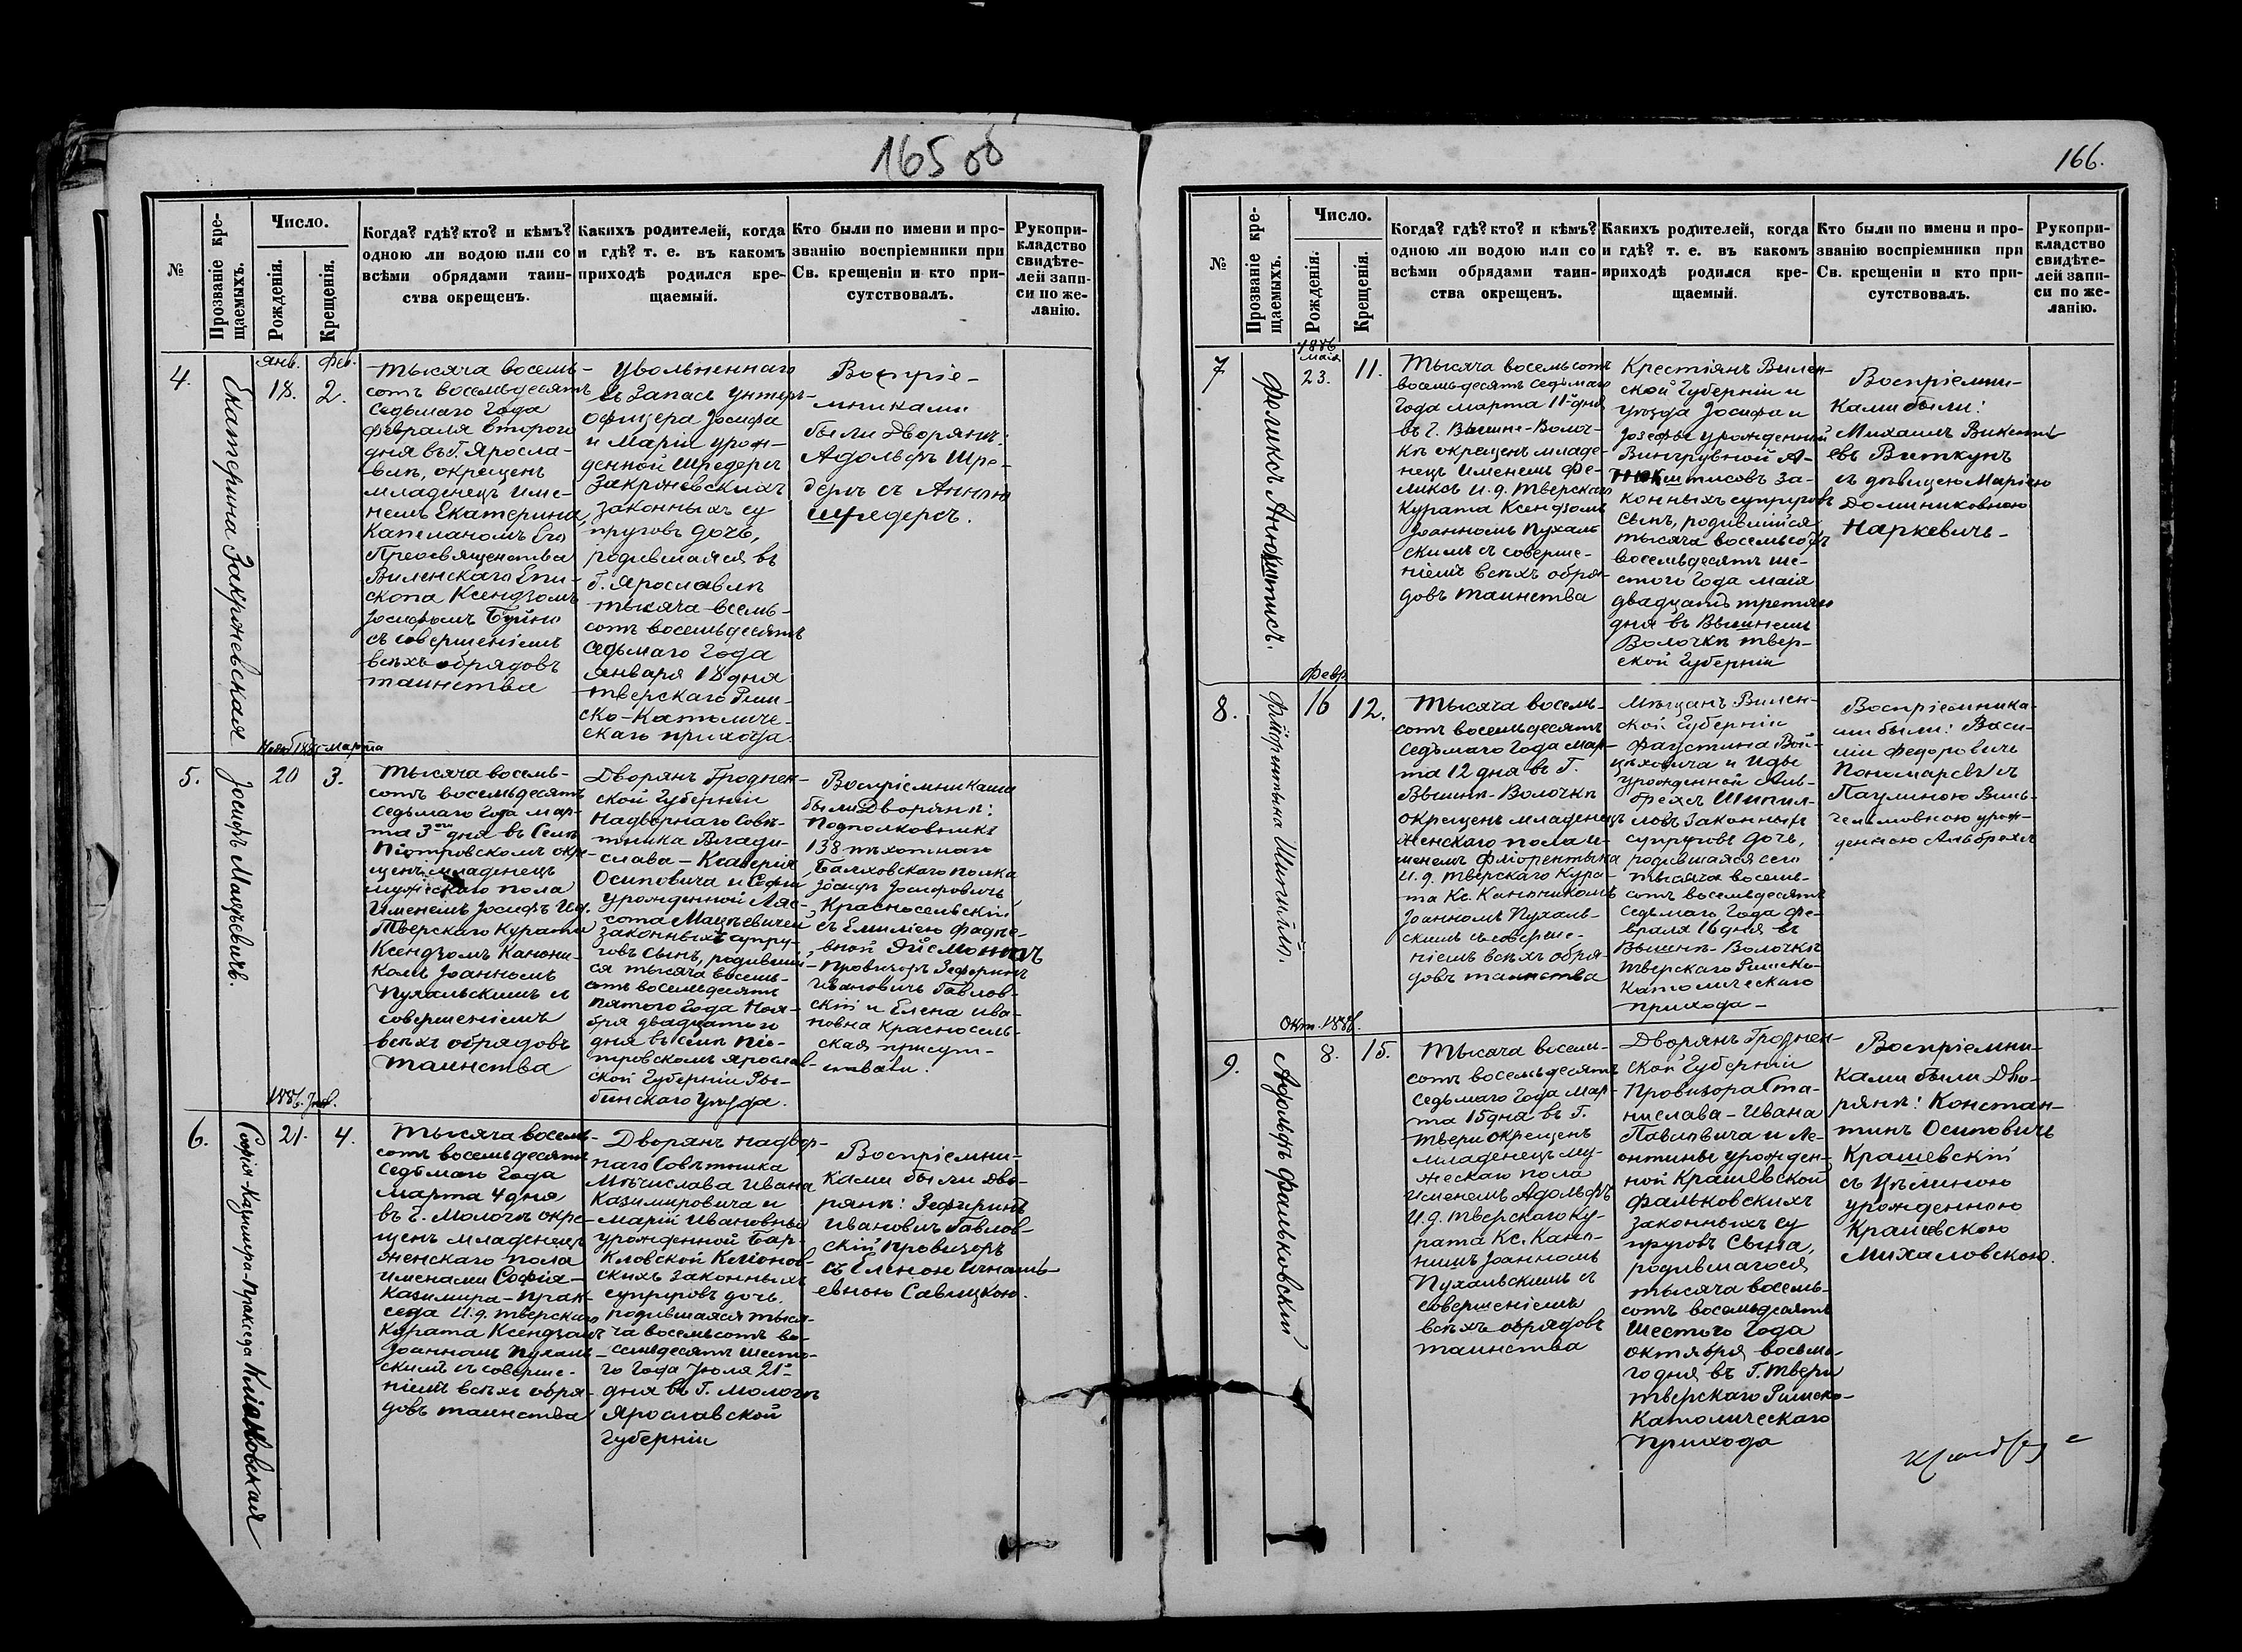 165 об
№
Прозваніе кре-
щаемыхъ.
Число.
Рожденія.
Крещенія.
Когда? гдѣ? кто? и кѣмъ?
одною ли водою или со
всѣми обрядами таин-
ства окрещенъ.
Какихъ родителей, когда
и гдѣ? т. е. въ какомъ
приходѣ родился кре-
щаемый.
Кто были по имени и про-
званію воспріемники при
Св. крещеніи и кто при-
сутствовалъ.
Рукопри-
кладство
свидѣте-
лей запи-
си по же-
ланію.
4.
Екатерина Закржевская
Янв.
18.
Фев.
2.
Тысяча восемь-
сотъ восемьдесятъ
седьмаго Года
февраля втораго
дня въ Г. Яросла-
влѣ, окрещенъ
младенецъ Име-
немъ Екатерина,
Капеланомъ Его
Преосвященства
Виленскаго Епи-
скопа Ксендзомъ
Іосифомъ Буйно
съ совершеніемъ
всѣхъ обрядовъ
таинства
Увольненнаго
въ Запасъ Унтеръ-
офицера Іосифа
и Маріи урож-
денной Шредерсъ
Закржевскихъ
законныхъ су
пруговъ дочь,
родившаяся въ
Г. Ярославлѣ
тысяча восемь-
сотъ восемьдесятъ
седьмаго Года
Января 18 дня
Тверскаго Рим-
ско-Католиче-
скаго прихода.
Воспріе-
мниками
были Дворянъ:
Адольфъ Шре-
дерсъ съ Анною
Шредерсъ.
5.
Іосифъ Мацѣевичъ.
Нояб 1885
20
Марта
3.
Тысяча восемь-
сотъ восемьдесятъ
седьмаго Года Мар-
та 3го дня въ Селѣ
Піотровскомъ окре-
щенъ младенецъ
мужескаго пола
Именемъ Іосифъ И.д.
Тверскаго Курата
Ксендзомъ Канони-
комъ Іоанномъ
Пухальскимъ съ
совершеніемъ
всѣхъ обрядовъ
таинства
Дворянъ Гроднен-
ской Губерніи
Надворнаго Совѣ-
тника Влади-
слава-Ксаверія
Осиповича и Софіи
урожденной Ляс-
сота Мацѣевичей
законныхъ супру-
говъ сынъ, родивший-
ся тысяча восемь-
сотъ восемьдесятъ
пятого Года Ноя-
бря двадцатаго
дня въ Селѣ Піо-
тровскомъ Ярослав-
ской Губерніи Ры-
бинскаго Уѣзда.
Воспріемниками
были Дворяне:
Подполковникъ
138 пѣхотнаго
Балховскаго полка
Іосифъ Іосифовичъ
Красносельскій
съ Емиліею Фадѣе-
вной Эйсмонтъ
Провизоръ Зеферинъ
Ивановичъ Гавлов-
скій и Елена Ива-
новна Красносель-
ская присут-
ствовали.
6.
Софія-Казимира-Пракседа Кліоновская
1886. Іюл.
21.
4.
Тысяча восемь-
сотъ восемьдесятъ
седьмаго Года
марта 4 дня
въ Г. Мологѣ окре-
щенъ младенецъ
женскаго пола
именами Софія-
Казимира-Прак-
седа И.д. Тверскаго
Курата Ксендзомъ
Іоанномъ Пухаль-
скимъ съ соверше-
ніемъ всѣхъ обря-
довъ таинства
Дворянъ Надвор-
наго Совѣтника
Мѣчислава Ивана
Казимировича и
Маріи Ивановны
урожденной Бар-
кловской Кліонов-
скихъ законныхъ
супруговъ дочь,
родившаяся тыся-
ча восемьсотъ во-
семьдесятъ шесто-
го Года Іюля 21-
дня въ Г. Мологѣ
Ярославской
Губерніи
Воспріемни-
ками были Дво-
ряне: Зеферинъ
Ивановичъ Гавлов-
скій провизоръ
съ Еленою Игнать-
евною Савицкою.
166.
№
Прозваніе кре-
щаемыхъ.
Число.
Рожденія.
Крещенія.
Когда? гдѣ? кто? и кѣмъ?
одною ли водою или со
всѣми обрядами таин-
ства окрещенъ.
Какихъ родителей, когда
и гдѣ? т. е. въ какомъ
приходѣ родился кре-
щаемый.
Кто были по имени и про-
званію воспріемники при
Св. крещеніи и кто при-
сутствовалъ.
Рукопри-
кладство
свидѣте-
лей запи-
си по же-
ланію.
7
Феликсъ Анюкштисъ.
1886
маія
23.
11.
Тысяча восемьсотъ
восемьдесятъ седьмаго
Года марта 11-дня
въ Г. Вышне-Волоч-
кѣ окрещенъ младе-
нецъ Именемъ Фе-
ликсъ И.д. Тверскаго
Курата Ксендзомъ
Іоанномъ Пухаль
скимъ съ соверше-
ніемъ всѣхъ обря-
довъ таинства
Крестіянъ Вилен-
ской Губерніи и
Уѣзда Іосифа и
Іозефы урожденной
Вингрувной А-
нюкштисовъ за-
конныхъ супруговъ
сынъ, родившійся
тысяча восемьсотъ
восемьдесятъ ше-
стого Года маія
двадцать третьяго
дня въ Вышнемъ
Волочкѣ Твер-
ской Губерніи
Воспріемни-
ками были:
Михаилъ Викенті
евъ Виткунъ
съ дѣвицею Маріею
Доминиковною
Наркевичъ-
8.
Фліорентына Шипилло.
Февр
16
12.
Тысяча восемь-
сотъ восемьдесятъ
седьмаго Года Мар-
та 12 дня въ Г.
Вышнѣ-Волочкѣ
окрещенъ младенецъ
женскаго пола И-
менемъ Фліорентына
И.д. Тверскаго Кура-
та Кс. Каноникомъ
Іоанномъ Пухаль-
скимъ съ соверше-
ніемъ всѣхъ обря-
довъ таинства
Мѣщанъ Вилен-
ской Губерніи
Фаустина Вой-
цѣховича и Иды
урожденной Аль-
брехсъ Шипил-
ловъ законныхъ
супруговъ дочь,
родившаяся сего
тысяча восемь-
сотъ восемьдесятъ
седьмаго Года фе-
враля 16 дня въ
Вышнѣ-Волочкѣ
Тверскаго Римско-
Католическаго
прихода-
Воспріемника-
ми были: Васи-
лій Федоровичъ
Пономаревъ съ
Паулиною Виль-
гельмовною урож-
денною Альбрехсъ
9.
Адольфъ Фальковскій
Окт. 1886.
8.
15.
Тысяча восемь-
сотъ восемьдесятъ
седьмаго Года Мар-
та 15 дня въ Г.
Твери окрещенъ
младенецъ му-
жескаго пола
Именемъ Адольфъ
И.д. Тверскаго Ку-
рата Кс. Кано-
никъ Іоанномъ
Пухальскимъ съ
совершеніемъ
всѣхъ обрядовъ
таинства
Дворянъ Гроднен-
ской Губерніи
Провизора Ста-
нислава-Ивана
Павловича и Ле-
онтины урожден-
ной Крашевской
Фальковскихъ
законныхъ су
пруговъ Сына,
родившагося
тысяча восемь-
сотъ восемьдесятъ
шестого Года
октября восьма-
го дня въ Г. Твери
Тверскаго Римско-
Католическаго
прихода
Воспріемни-
ками были Дво-
ряне: Констан-
тинъ Осиповичъ
Крашевскій
съ Цѣлиною
урожденною
Крашевскою
Михаловскою.